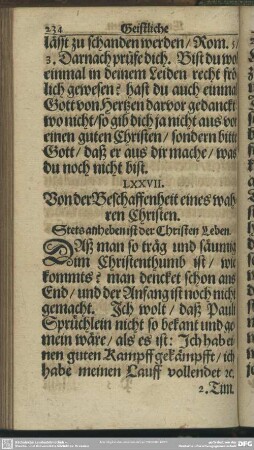 234 Geistliche
läſſt zu ſchanden werden / Rom. 5/
3. Darnach prüfe dich. Biſt du wol
einmal in deinem Leiden recht frö
lich geweſen? haſt du auch einma
Gott von Hertzen darvor gedanckt
wo nicht / ſo gib dich ja nicht aus vor
einen guten Chriſten / ſondern bitte
Gott / daß er aus dir mache / was
du noch nicht biſt.
LXXVII.
Von der Beſchaffenheit eines wah
ren Chriſten.
Stets anheben iſt der Chriſten Leben
DAß man ſo träg und ſäumig
im Chriſtenthumb iſt / wie
kommts? man dencket ſchon ans
End / und der Anfang iſt noch nicht
gemacht. Ich wolt / daß Pauli
Sprüchlein nicht ſo bekant und ge
mein wäre / als es iſt: Ich hab ei
nen guten Kampff gekämpfft / ich
habe meinen Lauff vollendet ꝛc.
2. Tim.
DFG